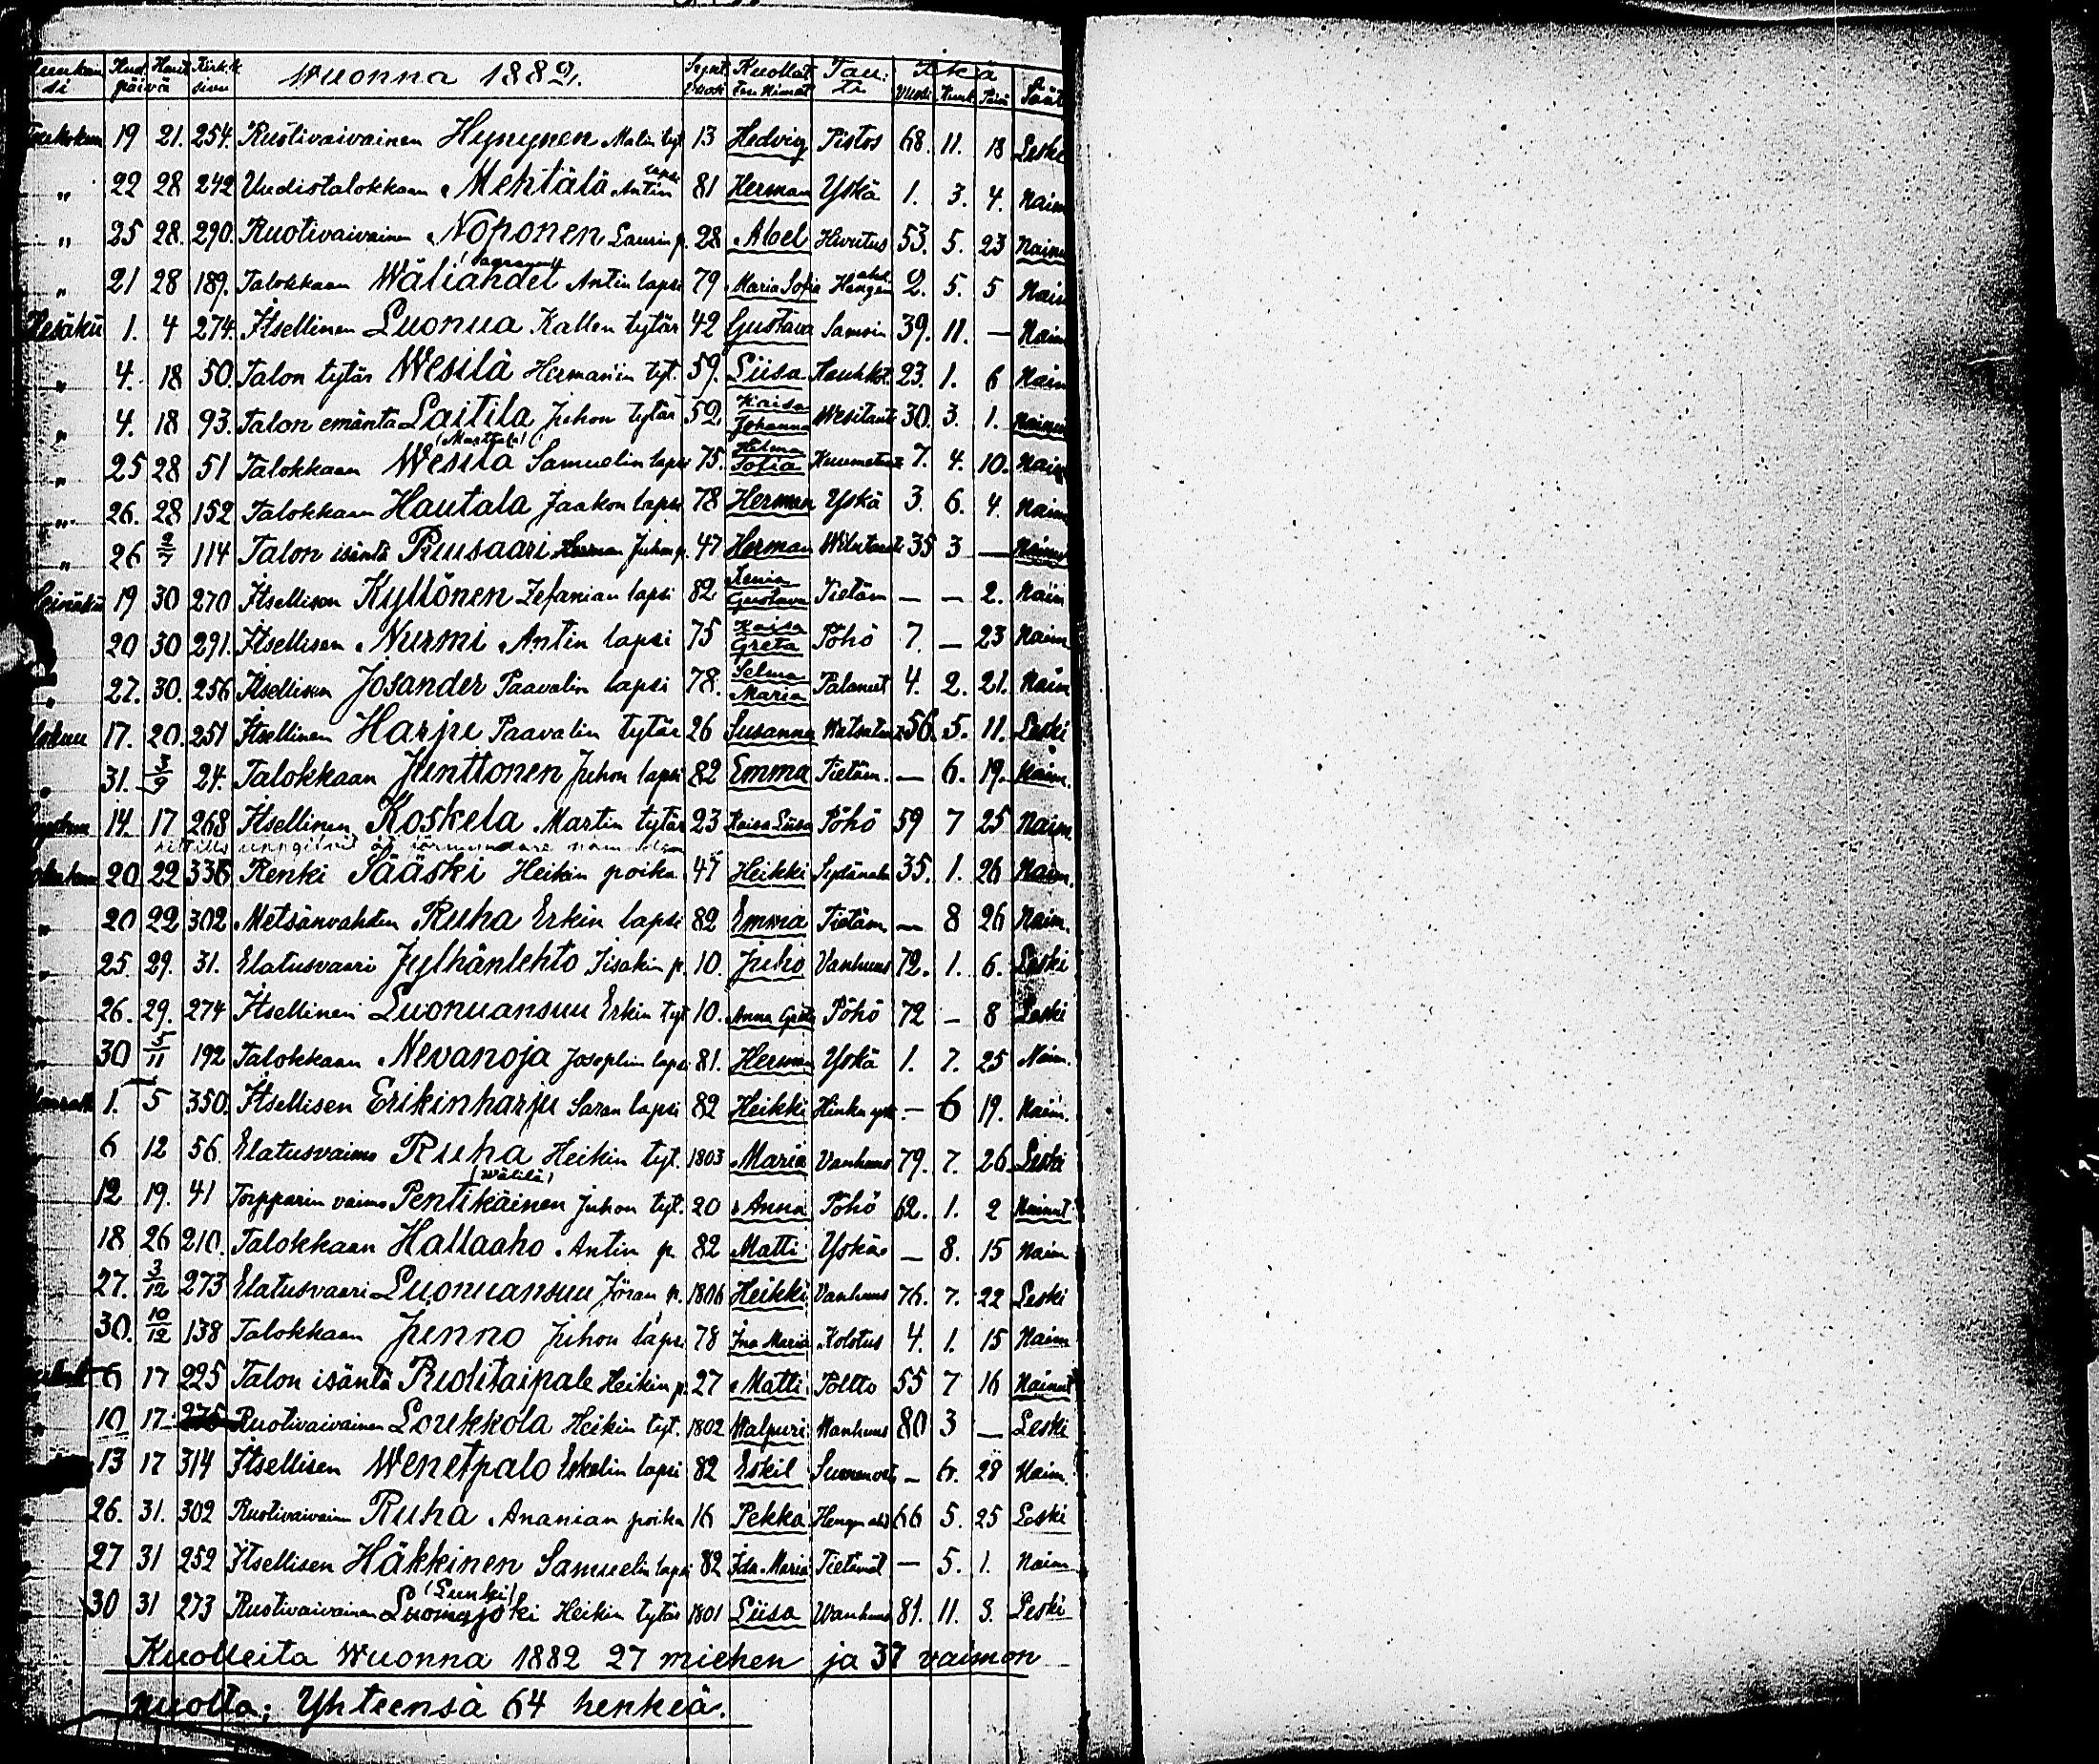 Kuol Haut Kirk.k Wuonna 1882. Synt. Kuollut Tau: Ikä
päivä sivu vuosi ten Nimet ti Vuosi Kuuk Päiv Sääty
Toukokuu 19 21. 254. Ruotivaivainen Hynynen Malin tyt 13 Hedvig Pistos 68. 11. 18 Leski
" 22 28 242 Uudistalokkaan Mehtälä Antin lapsi 81 Herman Yskä 1. 3. 4. Naim
" 25 28. 290. Ruotivaivainen Noponen Laurin p. 28 Abel Huutus 53. 5. 23 Nainu
" 21 28 189. Talokkaan Wäliahdet Antin lapsi 79 Maria Sofia Hengen ahd 2. 5. 5 Naim
Kesäku 1. 4 274. Itsellinen Luonua Kallen tytär 42 Gustava 39. 11. — Naim
" 4. 18 50. Talon tytär Wesilä Hermannin tyt. 59. Liisa Keuhkot. 23. 1. 6 Naim
" 4. 18 93. Talon emäntä Laitila Juhon tytär 52 Kaisa Johanna Wesitaut 30. 3. 1. Nainu
(Marttala)
" 25 28 51 Talokkaan Wesilä Samuelin lapsi 75. Helma Sofia Kuumetaut 7. 4. 10. Naim
" 26. 28 152 Talokkaan Hautala Jaakon lapsi 78 Herman Yskä 3. 6. 4. Naim
" 26 2/7 114 Talon isäntä Ruusaari Herman Juhon p. 47 Herman Wilutaut 35 3 — Nainu
Heinäku 19 30 270 Itsellisen Kyllönen Zefanian lapsi 82 Xenia Gustava Tietäm — — 2. Naim
20 30 291. Itsellisen Nurmi Antin lapsi 75 Kaisa Greta Pöhö 7. — 23 Naim
" 27. 30. 256 Itsellisen Josander Paavalin lapsi 78. Selma Maria Palanut 4. 2. 21. Naim
Elokuu 17. 20. 251 Itsellinen Harju Paavalin tytär 26 Susanna Watsataut 56. 5. 11. Leski
" 31. 3/9 24. Talokkaan Junttonen Juhon lapsi 82 Emma Tietäm. — 6. 19. Naim.
Syyskuu 14. 17 268 Itsellinen Koskela Martin tytär 23 Kaisa Liisa Pöhö 59 7 25 Naim.
Lokakuu 20 22 336 Renki Sääski Heikin poika 47 Heikki 35. 1. 26 Naim.
" 20 22 302 Metsänvahdin Ruha Erkin lapsi 82 Emma Tietäm — 8 26 Naim.
" 25. 29. 31. Elatusvaari Jylhänlehto Iisakin p. 10. Juho Vanhuus 72. 1. 6. Leski
" 26. 29. 274 Itsellinen Luonuansuu Erkin tyt 10. Anna Greta Pöhö 72 — 8 Leski
" 30 5/11 192 Talokkaan Nevanoja Josephin lapsi 81. Herman Yskä 1. 7. 25 Naim.
Marrask 1. 5 350. Itsellisen Erikinharju Saran lapsi 82 Heikki Hinku ysk. — 6 19. Naim.
" 6 12 56. Elatusvaimo Ruha Heikin tyt. 1803 Maria Vanhuus 79. 7. 26 Leski
(Wälilä)
" 12 19. 41 Torpparin vaimo Pentikäinen Juhon tyt. 20 Anna Pöhö 62. 1. 2 Nainut
" 18 26 210. Talokkaan Hallaaho Antin p. 82 Matti Yskä — 8. 15 Naim
" 27. 3/12 273 Elatusvaari Luonuansuu Jöran p. 1806 Heikki Vanhuus 76. 7. 22 Leski
" 30. 10/12 138 Talokkaan Junno Juhon lapsi 78 Ina Maria Kolotus 4. 1. 15 Naim
6 17 225 Talon isäntä Ruolitaipale Heikin p. 27 Matti Poltto 55 7 16 Nainut
" 10 17 275 Ruotivaivainen Loukkola Heikin tyt. 1802 Walpuri Wanhuus 80 3 — Leski
13 17 314 Itsellisen Wenetpalo Eskelin lapsi 82 Eskil — 6. 28 Naim.
" 26. 31. 302 Ruotivaivainen Ruha Ananian poika 16 Pekka Hengen ahd 66 5. 25 Leski
" 27 31 252 Itsellisen Häkkinen Samuelin lapsi 82 Ida Maria Tietämät — 5. 1. Naim
(Lunki)
30 31 273 Ruotivaivainen Luomajoki Heikin tytär 1801 Liisa Wanhuus 81. 11. 3. Leski
Kuolleita Wuonna 1882 27 miehen ja 37 vaimon
puolta; Yhteensä 64 henkeä.